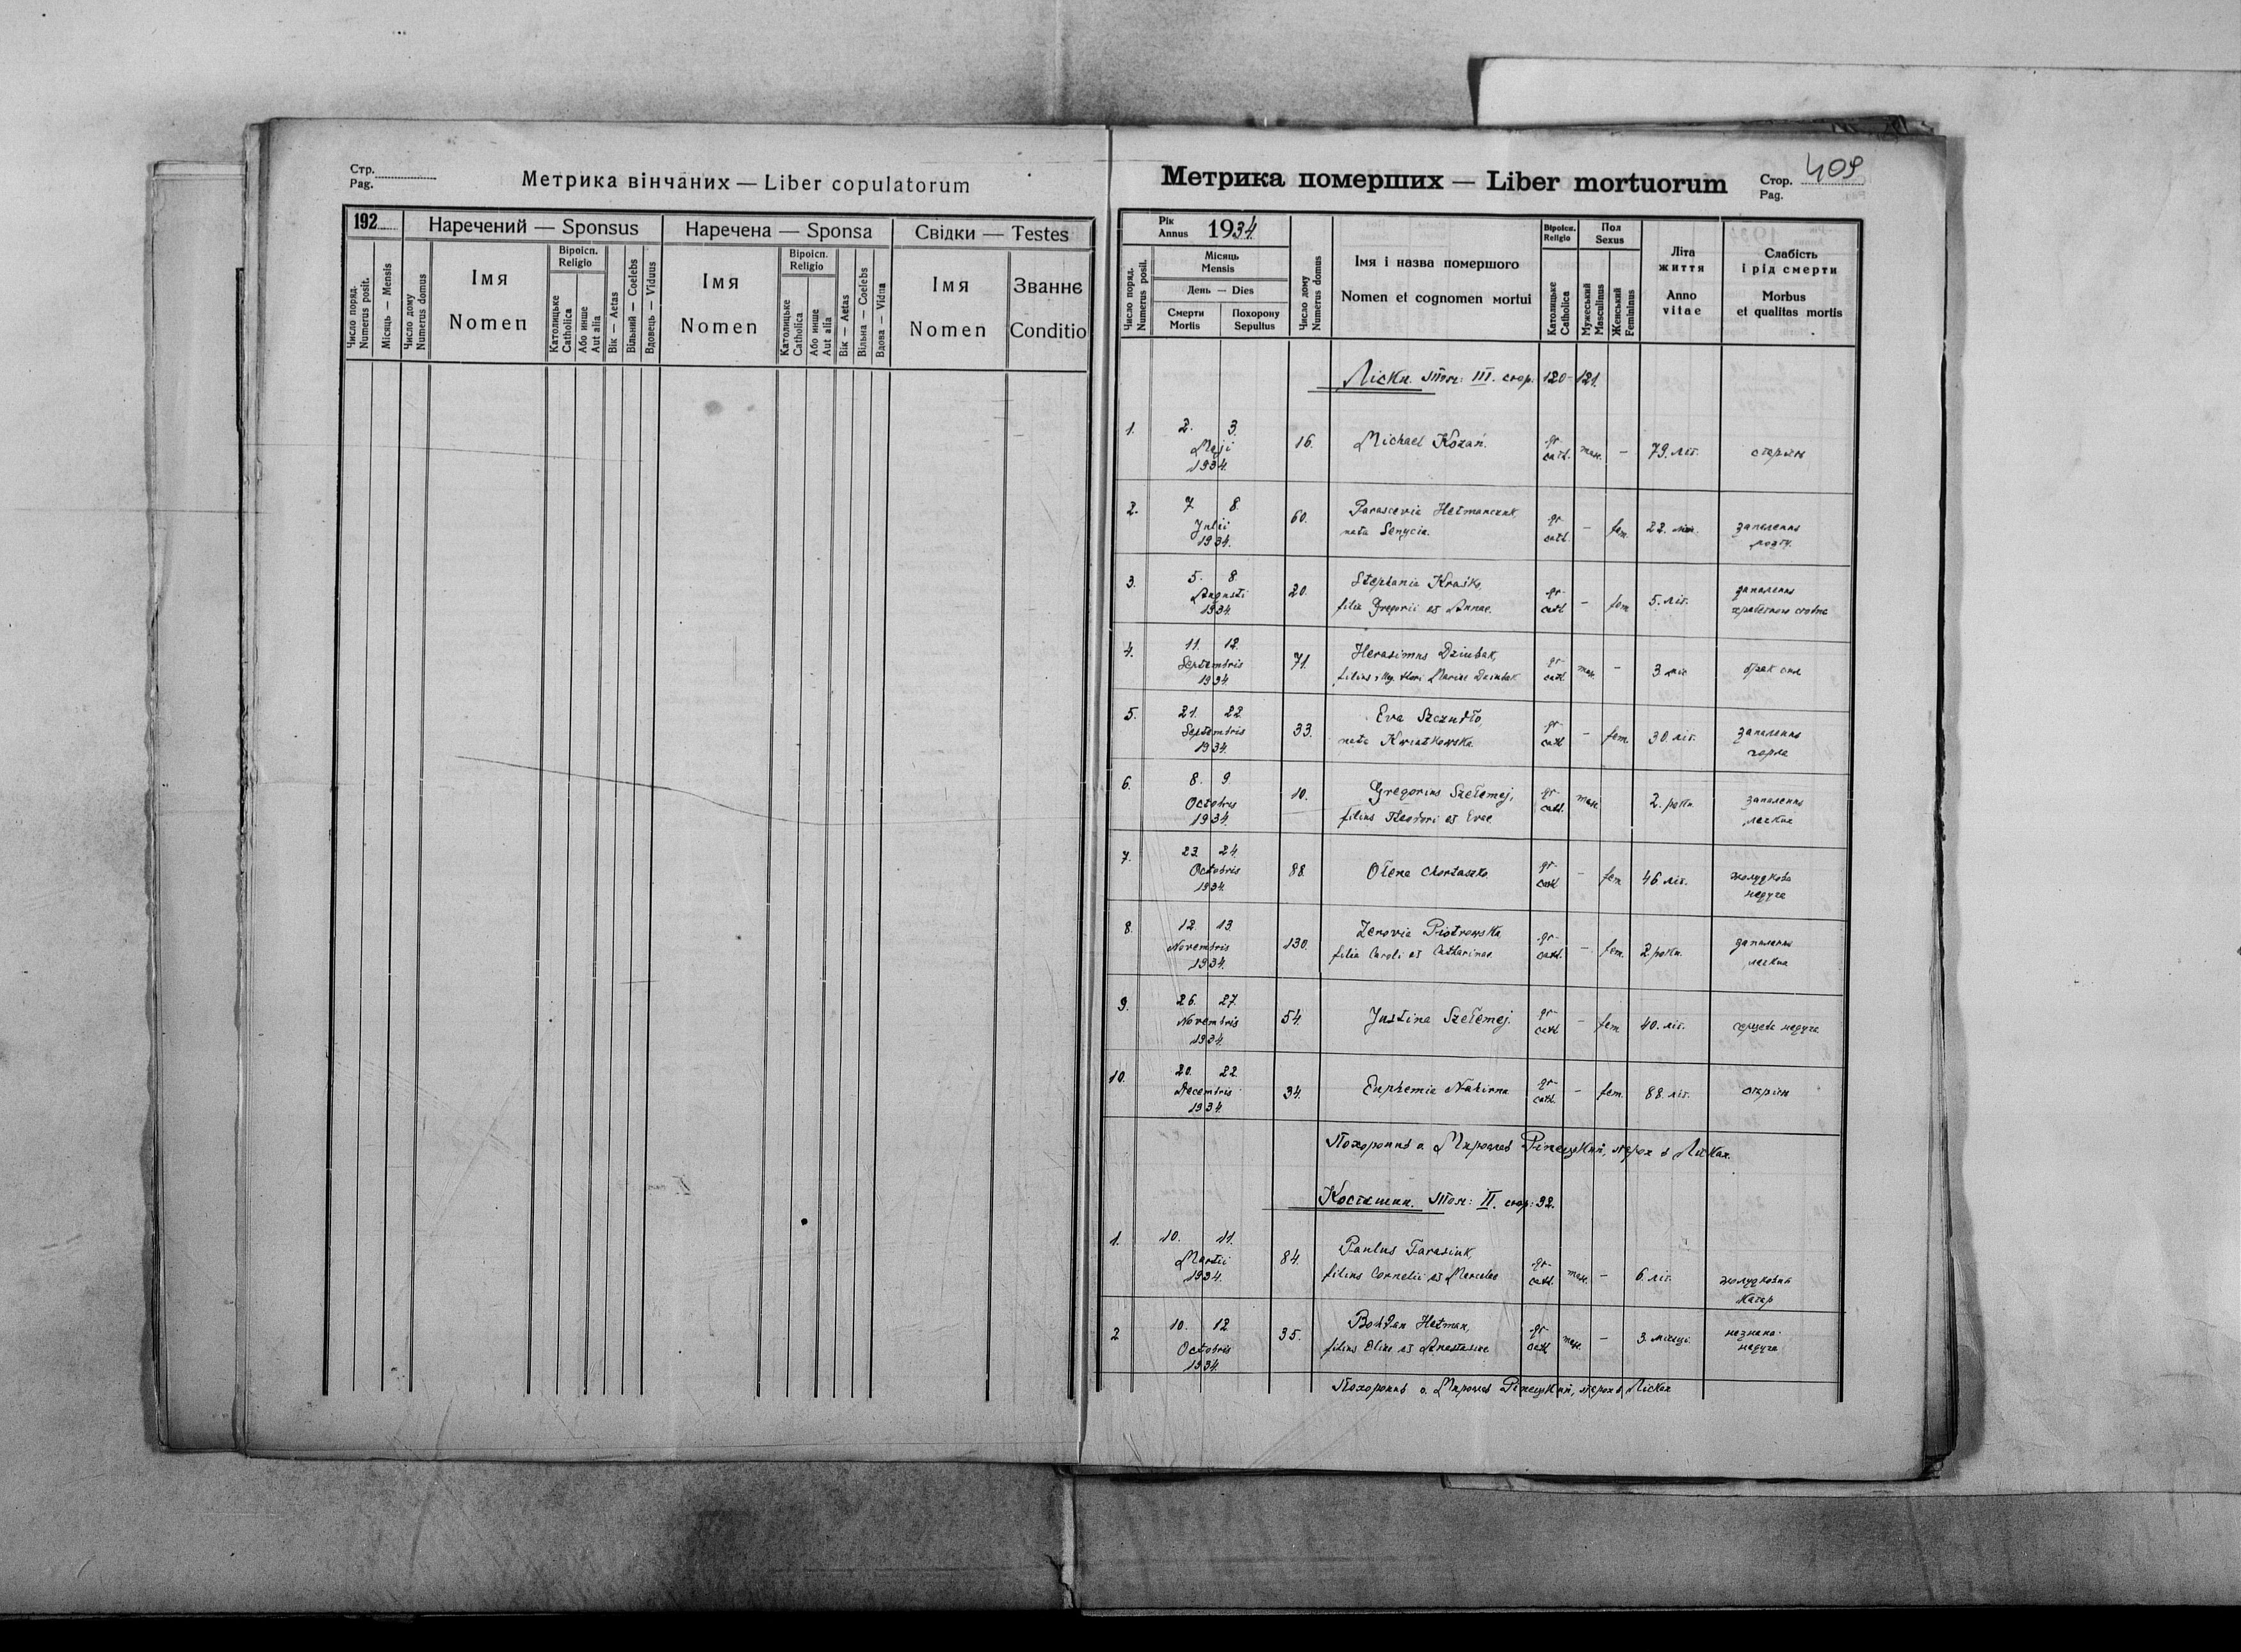 Стр.
Pag.
Метрика вінчаних — Liber copulatorum
192
Наречений — Sponsus
Наречена — Sponsa
Свідки — Testes
Число поряд.
Numerus posit.
Місяць — Mensis
Число дому
Numerus domus
Імя
Nomen
Віроісп.
Religio
Католицьке
Catholica
Або инше
Aut alia
Вік — Aetas
Вільний — Coelebs
Вдовець — Viduus
Імя
Nomen
Віроісп.
Religio
Католицьке
Catholica
Або инше
Aut alia
Вік — Aetas
Вільна — Coelebs
Вдова — Vidua
Імя
Nomen
Званнє
Conditio
Метрика померших — Liber mortuorum
Стор. 409
Pag.
Рік
Annus 1934.
Число поряд.
Numerus posit.
Місяць
Mensis
День — Dies
Смерти
Mortis
Похорону
Sepultus
Число дому
Numerus domus
Імя і назва помершого
Nomen et cognomen мortui
Віроісп.
Religio
Католицьке
Catholica
Пол
Sexus
Мужеський
Masculinus
Женський
Femininus
Літа
життя
Anno
vitae
Слабість
і рід смерти
Morbus
et qualitas mortis
Ліски. Том: III. стор. 120-121.
1. 2. 3. 16. Michael Kozań. gr. masc. – 79. літ.
Maji cath.
1934.
2. 7 8. 60. Parascevia Hetmanczuk, gr. – fem. 22. запалення
Julii nata Senycia. cath. мозгу.
1934.
3. 5. 8. 20. Stephania gr. – fem 5. літ. запалення
Augusti filia Gregorii et Annae. cath
1934.
4. 11. 12. 71. Herasimus Dziubak, gr. masc. – 3 міс брак сил
Septembris filius Mariae Dziubak cath.
1934.
5. 21. 22. 33. Eva Szczudło, gr. – fem. 30. літ. запалення
Septembris nata Kwiatkowska. cath
1934.
6. 8. 9. 10. Gregorius Szełemej, gr. masc. 2. роки запалення
Octobris filius Theodori et Evae cath. легких
1934.
7. 23. 24. 88. Ołena gr. – fem 46 літ. жолудкова
Octobris cath недуга
1934.
8. 12. 13. 130. Zenovia Piotrowska gr. – fem. 2 роки. запалення
Novembris filia Caroli et Catharinae cath. легких
1934.
9. 26. 27. 54. Justina Szełemej. gr. – fem 40. літ. серцева недуга
Novembris cath
1934.
10. 20. 22. 34. Euphemia Nahirna gr. – fem. 88. літ.
Decembris cath.
1934.
Похоронив о. Мирослав Ріпецький, парох в Лісках.
Костяшин. Том: II. стор: 92.
1. 10. 11. 84. Paulus Tarasiuk, gr. masc. – 6. літ. жолудковий
Martii filius Cornelii et cath. катар
1934.
2 10. 12 35. Bohdan Hetman, gr. masc. – 3. місяці незнана
Octobris filius Eliae et Anastasiae cath недуга
1934.
Похоронив о. Мирослав Ріпецький, парох в Лісках